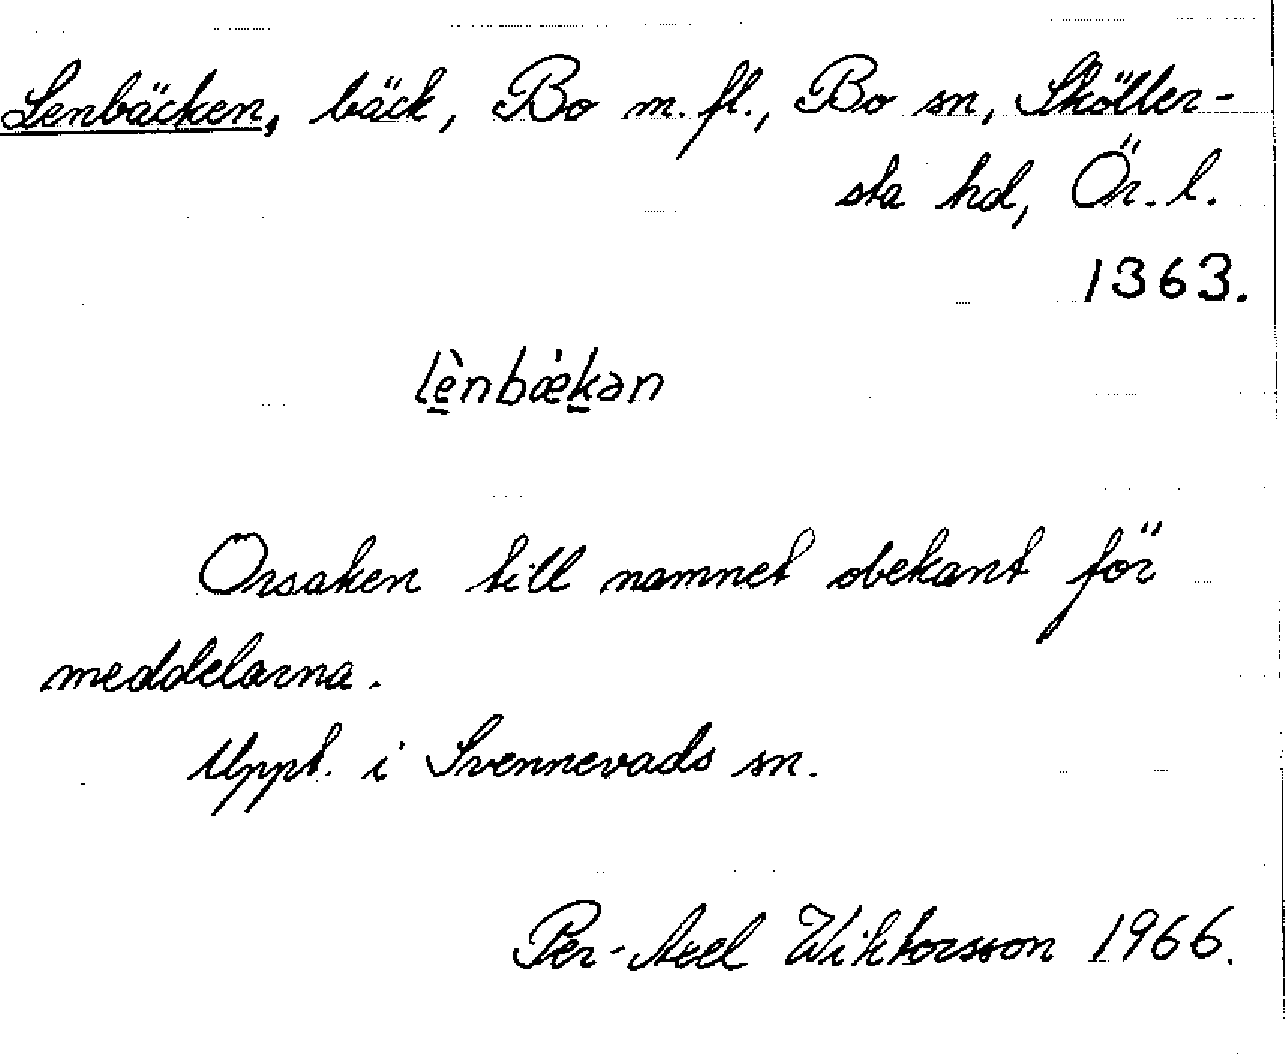 Lenbäcken, bäck, Bo m. fl., Bo sn, Sköller-
sta hd, Ör. l.
1363.
lènbæ̀kən
Orsaken till namnet obekant för
meddelarna.
Uppt. i Svennevads sn.
Per-Axel Wiktorsson 1966.